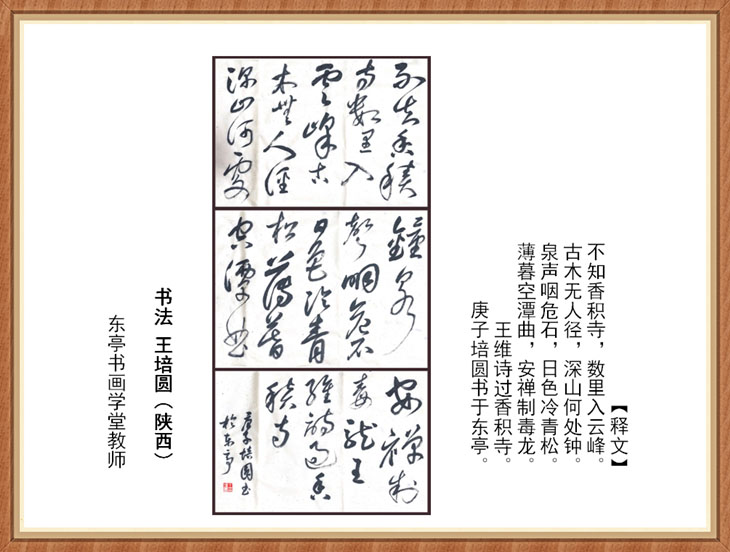 【释文】
不知香积寺，数里入云峰。
古木无人径，深山何处钟。
泉声咽危石，日色冷青松。
薄暮空潭曲，安禅制毒龙。
王维诗过香积寺。
庚子培圆书于东亭。
不知香積
寺數里入
雲峰古
木無人徑
深山何處
鐘泉
聲咽危石
日色冷青
松薄暮
空潭曲
安禪制
毒龍王
維詩過香
積寺
庚子培圓书
於东亭
书法 王培圆（陕西）
东亭书画学堂教师